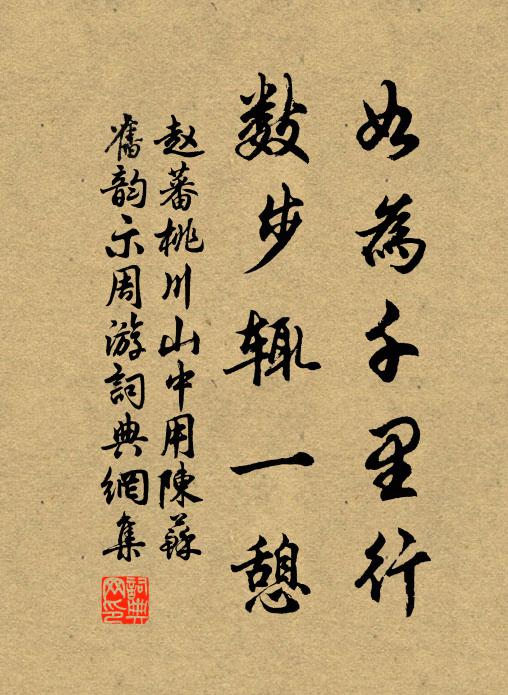 如為千里行
數步輒一憩
赵蕃桃川山中用陳蘇
舊韵示周游詞典網集
詞典网印